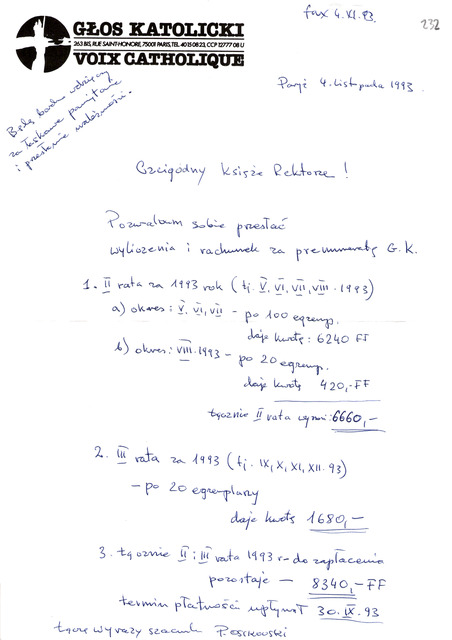 fax 4.XI.93
232
GŁOS KATOLICKI
263 BIS, RUE SAINT-HONORE, 75001 PARIS, TEL. 40 15 08 23, CCP 12777 08 U
VOIX CATHOLIQUE
Paryż 4. listopada 1993.
Będę bardzo wdzięczny
za łaskawe pamiętanie
i przesłanie należności.
Czcigodny Księże Rektorze!
Pozwalam sobie przesłać
wyliczenia i rachunek za prenumeratę G.K.
1. II rata za 1993 rok (tj. V, VI, VII, VIII. 1993)
a) okres: V, VI, VII - po 100 egzemp.
daje kwotę: 6240 FF
b) okres: VIII. 1993 - po 20 egzemp.
daje kwotę 420,-FF
łącznie II rata wynosi: 6660,-
2. III rata za 1993 (tj. IX, X, XI, XII. 93)
- po 20 egzemplarzy
daje kwotę 1680,-
3. łącznie II i III rata 1993 r - do zapłacenia
pozostaje - 8340,-FF
termin płatności upłynął 30.IX.93
łączę wyrazy szacunk